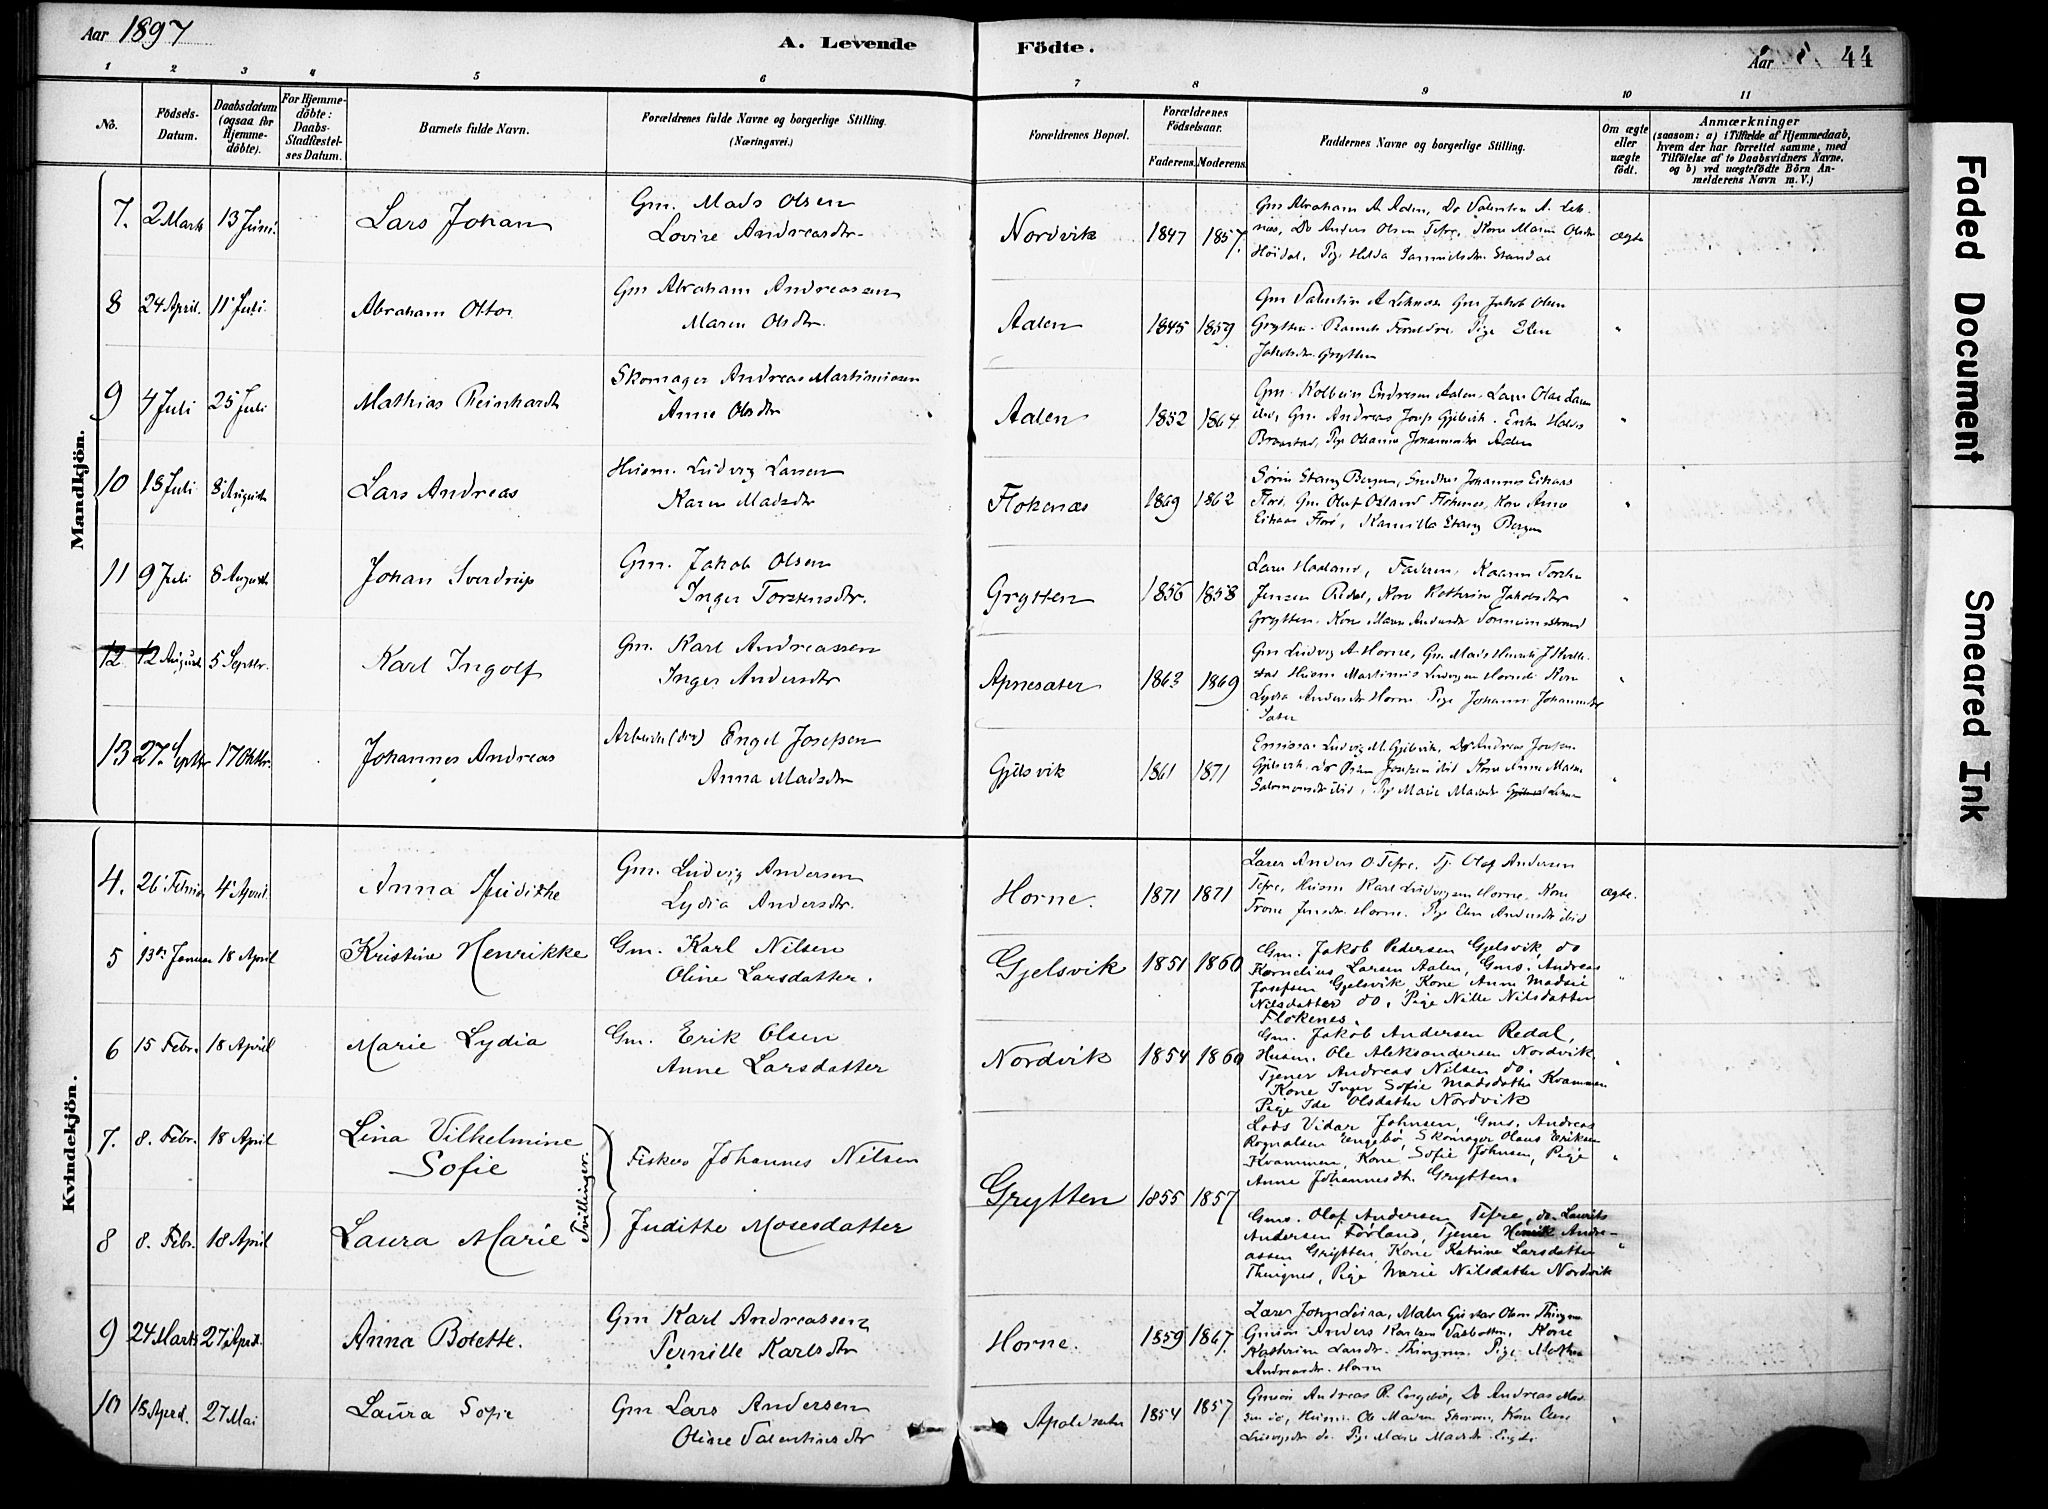 Aar 1897
A. Levende Födte.
Aar 44
1 2 3 4 5 6 7 8 9 10 11
No.
Födsels-Datum.
Daabsdatum (ogsaa for Hjemmedöbte).
For Hjemmedöbte: Daabs-Stadfæstelses Datum.
Barnets fulde Navn.
Forældrenes fulde Navne og borgerlige Stilling. (Næringsvei.)
Forældrenes Bopæl.
Forældrenes Födselsaar.
Faderens. Moderens.
Faddernes Navne og borgerlige Stilling.
Om ægte eller uægte födt.
Anmærkninger
(saasom: a) i Tilfælde af Hjemmedaab, hvem der har forrettet samme, med Tilföielse af to Daabsvidners Navne, og b) ved uægtefödte Börn Anmelderens Navn m. V.)
Mandkjön.
7. 2 Marts 13 Juni. Lars Johan
Gm. Mads Olsen
Lovise Andreasdtr.
Nordvik 1847 1857.
Gm Abraham A Aalen, Do Valentin A. Lek-
nes, Do Anders Olsen Tefre, Kone Maren Olsdtr
Höidal, Pige Hilda Samuelsdtr Standal
Ægte
8 24 April. 11 Juli. Abraham Otto
Gm Abraham Andreassen
Maren Olsdtr.
Aalen 1845 1859
Gm Valentin A Leknes Gm Jakob Olsen
Grytten. Barnets Forældre. Pige Elen
Jakobsdtr. Grytten
"
9 4 Juli 25 Juli Mathias Reinhardt
Skomager Andreas Martinussen
Anne Olsdtr
Aalen 1852 1864
Gm. Kolbein Endresen Aalen, Lars Olas
Gm. Andreas Josep Gjelsvik.
Pige Johannesdtr Aalen
"
10 18 Juli 8 August Lars Andreas
Husm. Ludvig Larsen
Karen Madsdtr
Flokenæs 1869 1862
Sörin Stang Bergen, Johannes Eikaas
Florö, Gm. Olaf Flokenes, Kone Anne
Eikaas Florö, Kamilla Stang Bergen
"
11 9 Juli 8 August Johan Sverdrup
Gm. Jakob Olsen
Inger Torstensdtr.
Grytten 1856 1858
Faderen,
Jensen Redal, Kone Kathrine Jakobsdtr
Grytten. Kone Maren Andersdtr
"
12 12 August 5 Septbr. Karl Ingolf
Gm. Karl Andreassen
Inger Andersdtr
Apnesæter 1863 1869
Gm Ludvig A Horne, Gm. Mads
Husm Martinus Ludvigsen Horne Kone
Lydia Andersdtr Horne Pige Johanne Johannesdtr
Sæter
"
13 27 Septbr 17 Oktbr. Johannes Andreas
Arbeider (dag) Engel Josefsen
Anna Madsdtr
Gjelsvik 1861 1871
Emissær Ludvig M. Gjelsvik, Do Andreas Josefsen
Gjelsvik. do Josefsen ibid Kone Anne Marie
Salomonsdtr ibid, Pige Marie Madsdtr
"
Kvindekjön.
4. 26 Februar 4 April. Anna Judithe
Gm. Ludvig Andersen
Lydia Andersdtr.
Horne. 1871 1871
Lærer Anders O Tefre. Tj. Olaf Andersen
Tefre, Husm Karl Ludvigsen Horne, Kone
Trone Jensdtr. Horne. Pige Elen Andersdtr ibid
Ægte.
5 13de Januar 18 April Kristine Henrikke
Gm. Karl Nilsen
Oline Larsdatter.
Gjelsvik 1851 1860
Gm. Jakob Pedersen Gjelsvik, do
Kornelius Larsen Aalen, Gms. Andreas
Josefsen Gjelsvik Kone Anne Madsie
Nilsdatter do. Pige Nille Nilsdatter
Flokenes.
"
6 15 Febr. 18 April Marie Lydia
Gm. Erik Olsen
Anne Larsdatter
Nordvik 1854 1860
Gm. Jakob Andersen Redal,
Husm. Ole Aleksandersen Nordvik
Tjener Andreas Nilsen do.
Kone Inger Sofie Madsdatter Kvammen
Pige Ida Olsdatter Nordvik
"
7. 8. Febr. 18 April Lina Vilhelmine
Sofie
Tvillinger.
Fisker Johannes Nilsen
Juditte Mosesdatter
Grytten 1855 1857
Lods Vidar Johnsen, Gms. Andreas
Rognalsen Engebö, Skomager Olaus Eriksen
Kvammen, Kone Sofie Johnsen, Pige
Anne Johannesdt. Grytten.
"
8 8. Febr. 18 April Laura Marie
Gms. Olaf Andersen Tefre, do. Laurits
Andersen Förland, Tjener Henrik Andre-
assen Grytten, Kone Katrine Larsdatter
Thingnes, Pige Marie Nilsdatter Nordvik
"
9 24 Marts 27 April. Anna Bolette.
Gm Karl Andreassen
Pernille Karlsdtr
Horne. 1859 1867.
Lærer Leira, Maler Gustav Olsen
Gmsön Anders Karlsen Kone
Kathrine Larsdtr. Thingnes. Pige
Andreasdtr. Horne
"
10 18 April. 27 Mai Laura Sofie
Gm Lars Andersen
Oline Valentinsdtr
Apalsæter 1854 1857
Gmsön Andreas R. Engebö, Do Andreas Mad-
sen do, Husm. Ole Madsen Skorven, Kone
Ludvigsdtr do. Pige Marie Madsdtr. Engebö
"
Faded Document
Smeared Ink